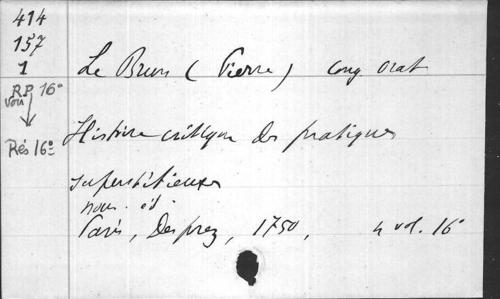 414
157
1
RP 16°
voir
Rés 16°
Le Brun (Pierre) cong orat
Histoire critique des pratiques
superstitieuses
nouv. éd.
Paris, Desprez, 1750, 4 vol. 16°